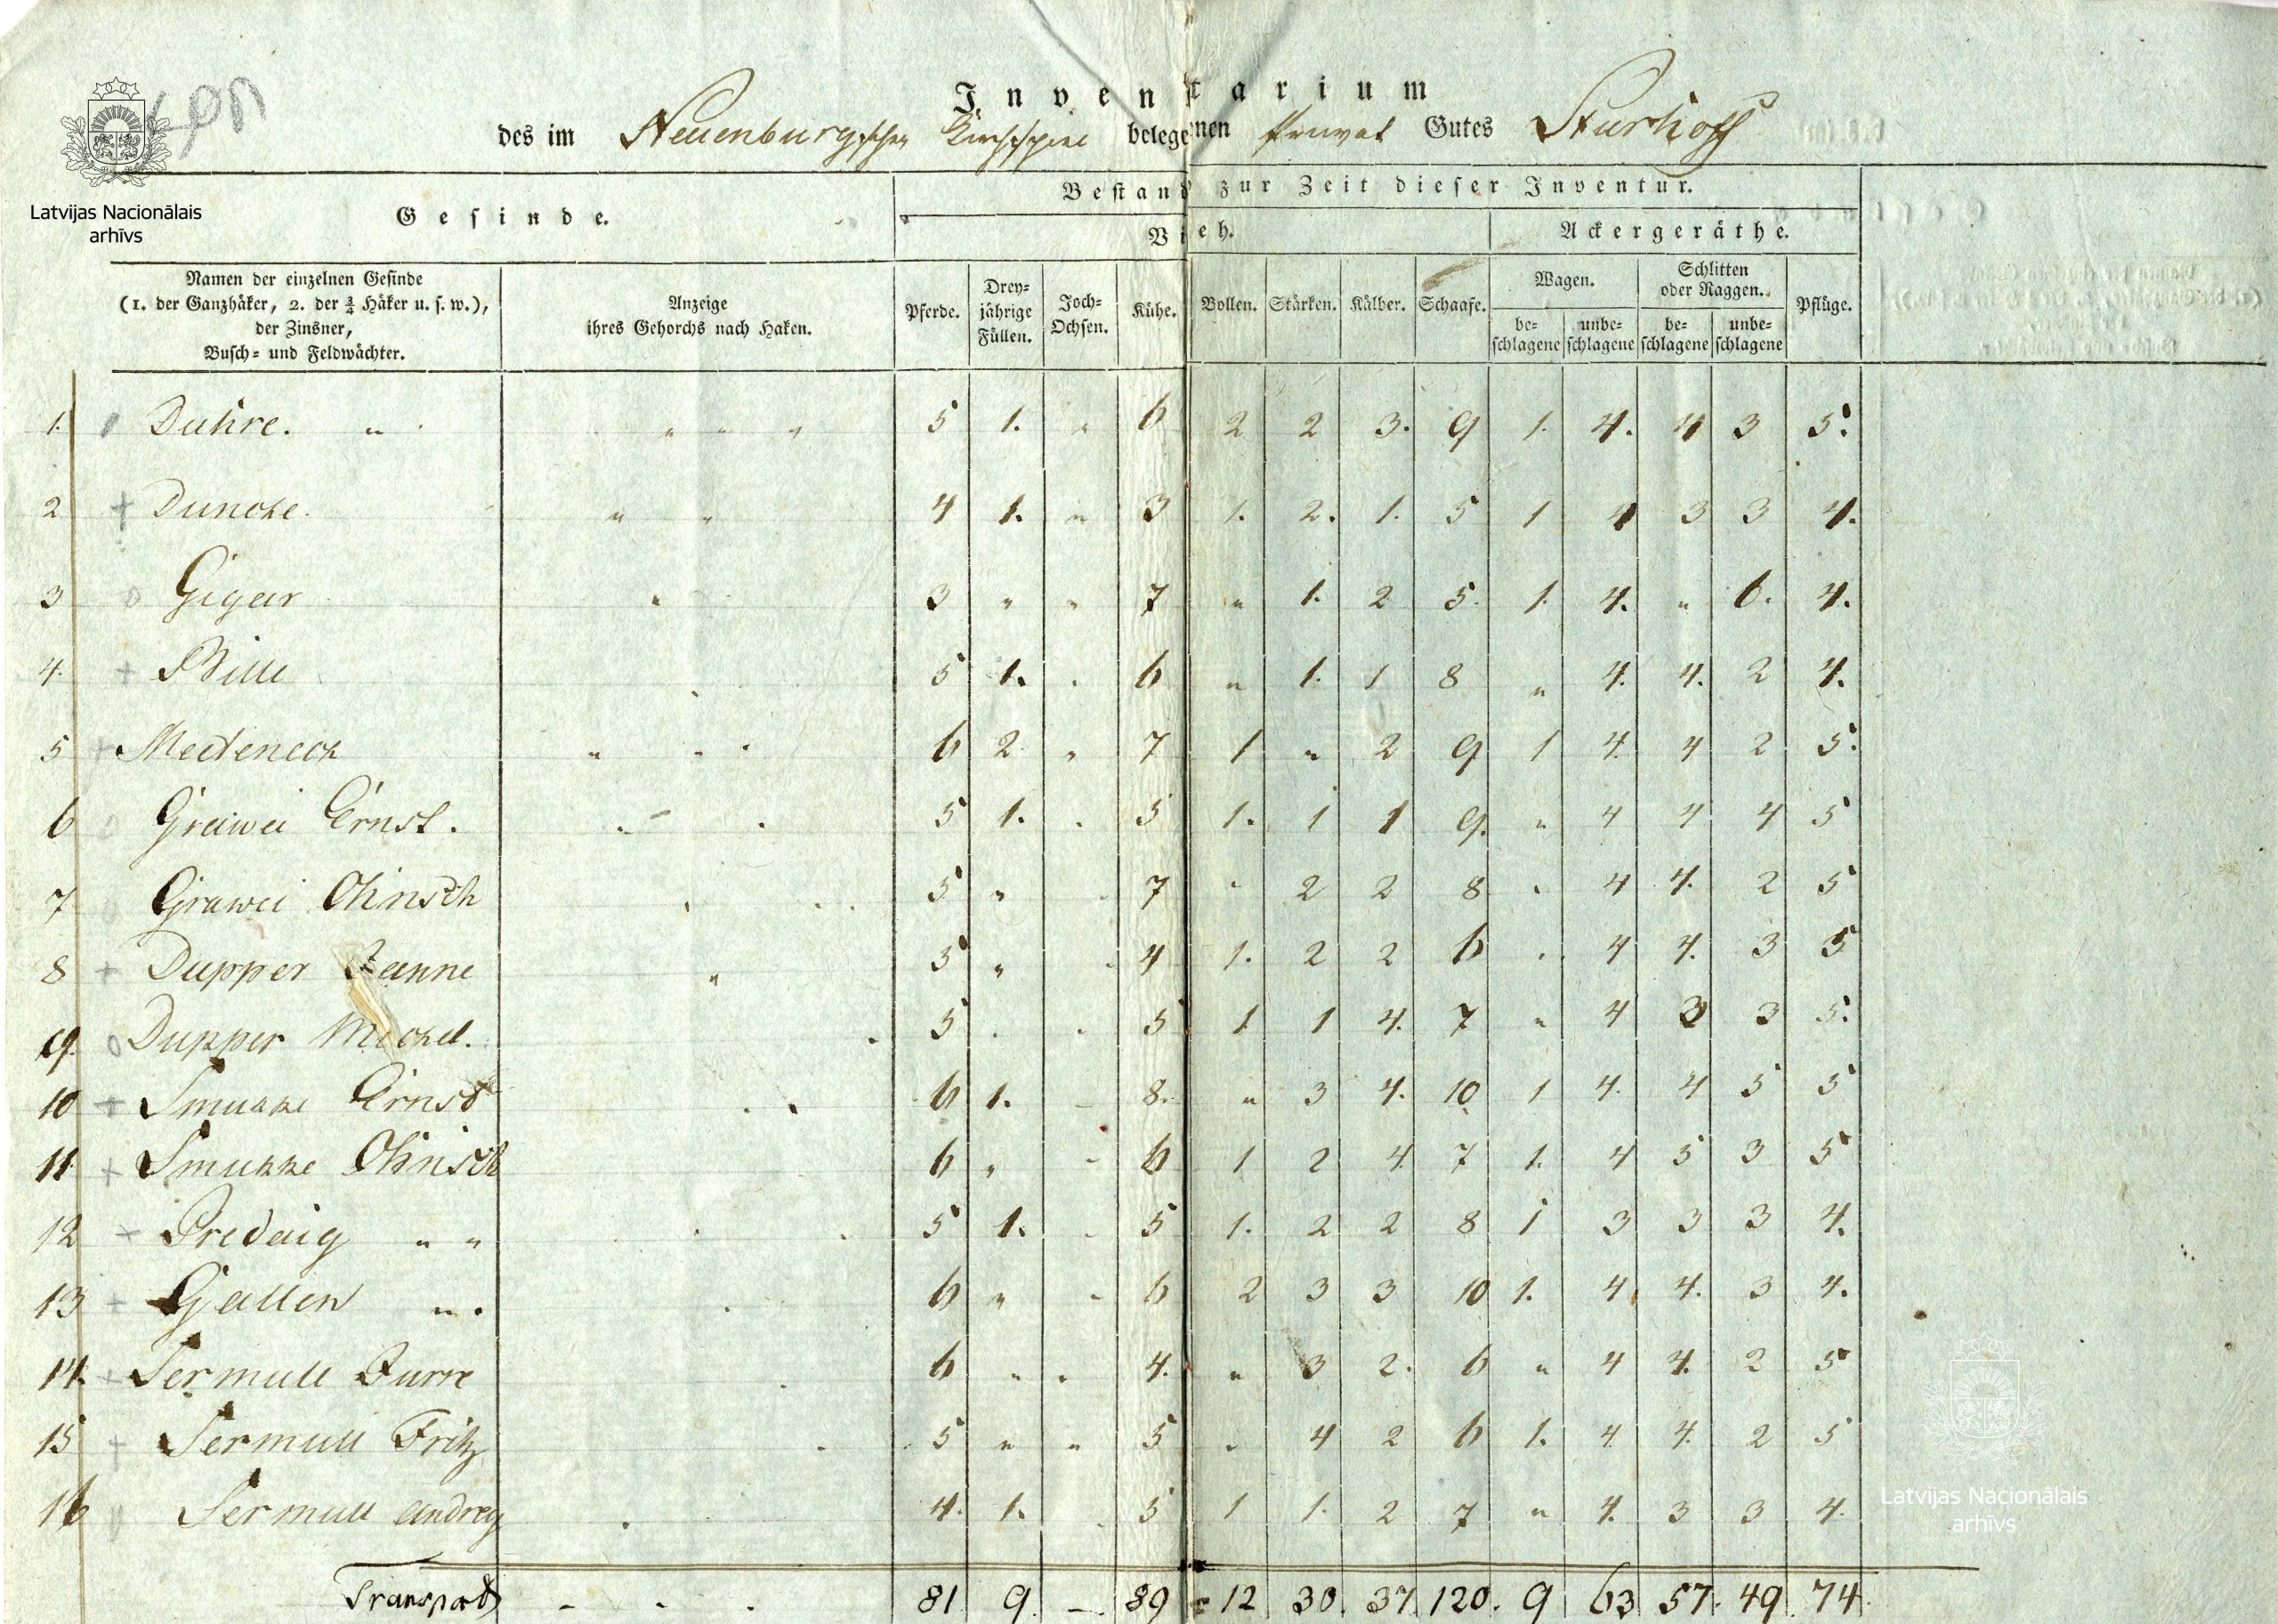 Inventarium
des im Neuenburgschen Kirchspiel belegenen Privat Gutes Sturhoff
Latvijas Nacionālais
arhīvs
Gesinde.
Bestand zur Zeit dieser Inventur.
Vieh.
Ackergeräthe.
Namen der einzelnen Gesinde
(1. der Ganzhäker, 2. der 3/4 Häker u. s. w.),
der Zinsner,
Busch- und Feldwächter.
Anzeige
ihres Gehorchs nach Haken.
Pferde.
Drey-
jährige
Füllen.
Joch-
Ochsen.
Kühe.
Bollen.
Stärken.
Kälber.
Schaafe.
Wagen.
be-
schlagene
unbe-
schlagene
Schlitten
oder Raggen.
be-
schlagene
unbe-
schlagene
Pflüge.
1. Duhre. " " " " 5 1. " 6 2 2 3. 9 1. 4. 4 3 5.
2 + Duncke. " " 4 1. " 3 1. 2. 1. 5 1 4 3 3 4.
3 o Gigair " 3 " " 7 " 1. 2 5. 1. 4. " 6. 4.
4. + Bille 5 1. . 6 " 1. 1 8 " 4. 4. 2 4.
5 + Meeteneck " " 6 2 " 7 1 " 2 9 1 4. 4 2 5.
6 Grawei Ernst. " 5 1. . 5 1. 1 1 9. " 4 4 4 5
7 Grawei Ohinsch 5 " 7 " 2 2 8 " 4 4. 2 5
8 + Dupper Janne " 5 " 4 1. 2 2 6 . 4 4. 3 5
9. o Dupper Mickel. 5 . . 5 1 1 4. 7 " 4 3 3 5.
10 + Smukke Ernst 6 1. - 8. " 3 4. 10 1 4. 4 5 5
11. + Smukke Ohinsch 6 " - 6 1 2 4 7 1. 4 5 3 5
12 + Predaig " " 5 1. . 5 1. 2 2 8 1 3 3 3 4.
13 + Gallen " . 6 " - 6 2 3 3 10 1. 4 4. 3 4.
14. + Sermull Jurre 6 " " 4. " 3 2. 6 " 4 4. 2 5
15 + Sermull Fritz 5 " " 5 " 4 2 6 1. 4 4. 2 5
16 Sermull Andrey 4. 1. . 5 1 1. 2 7 " 4. 3 3 4.
Transport - - . 81 9 - 89 12 30. 37. 120. 9 63 57. 49. 74.
Latvijas Nacionālais
arhīvs